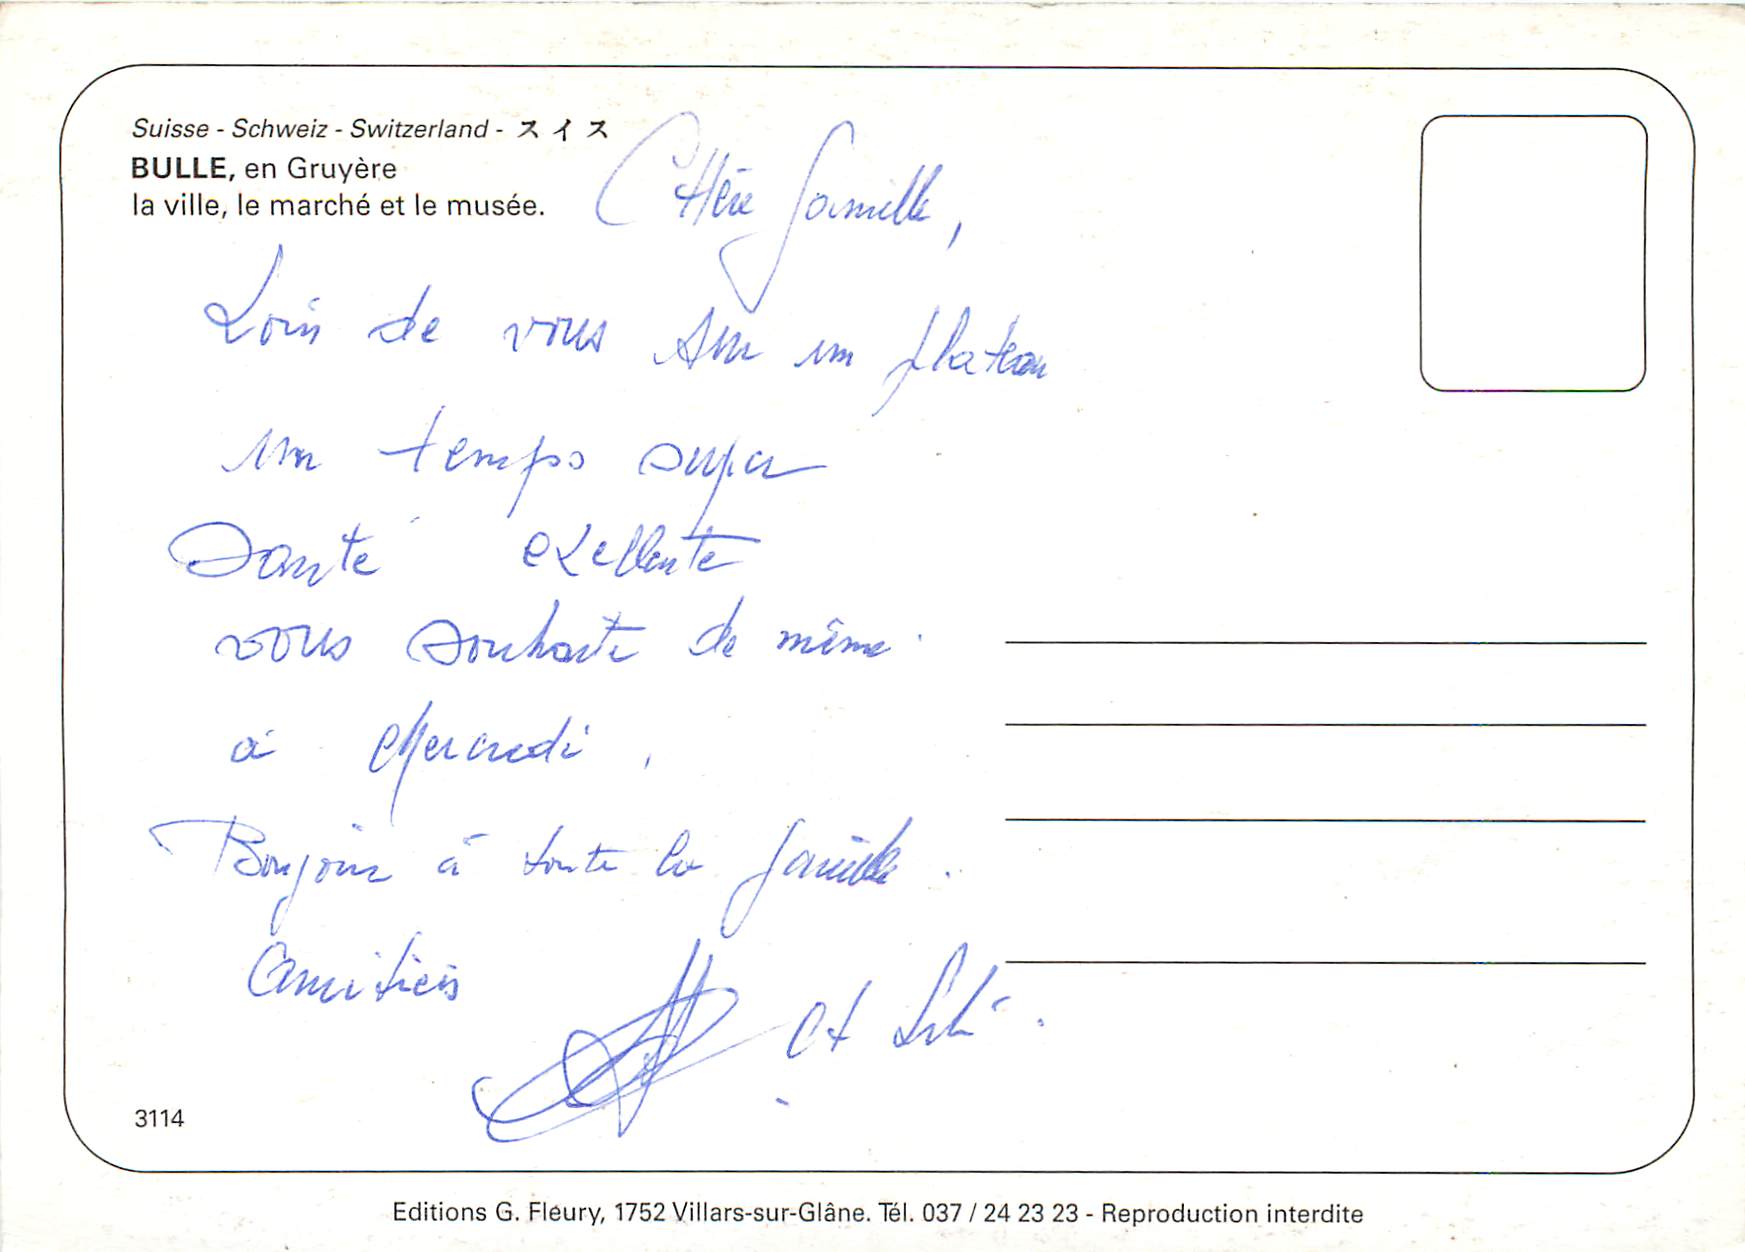 Suisse - Schweiz - Switzerland - スイス
BULLE, en Gruyère
la ville, le marché et le musée.
Chère famille,
Loin de vous sur un plateau
un temps super
Santé exellente
vous souhaite de même.
à Mercredi,
Bonjour à toute la famille.
Amitiés
et
3114
Editions G. Fleury, 1752 Villars-sur-Glâne. Tél. 037 / 24 23 23 - Reproduction interdite